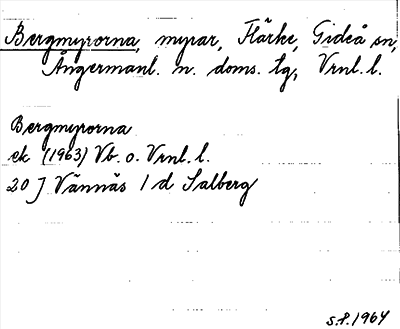 Bergmyrorna, myrar, Flärke, Gideå sn,
Ångermanl. n. doms. tg, Vrnl. l.
Bergmyrorna
ek (1963) Vb. o. Vrnl. l.
20 J Vännäs 1 d Salberg
s.f. 1964